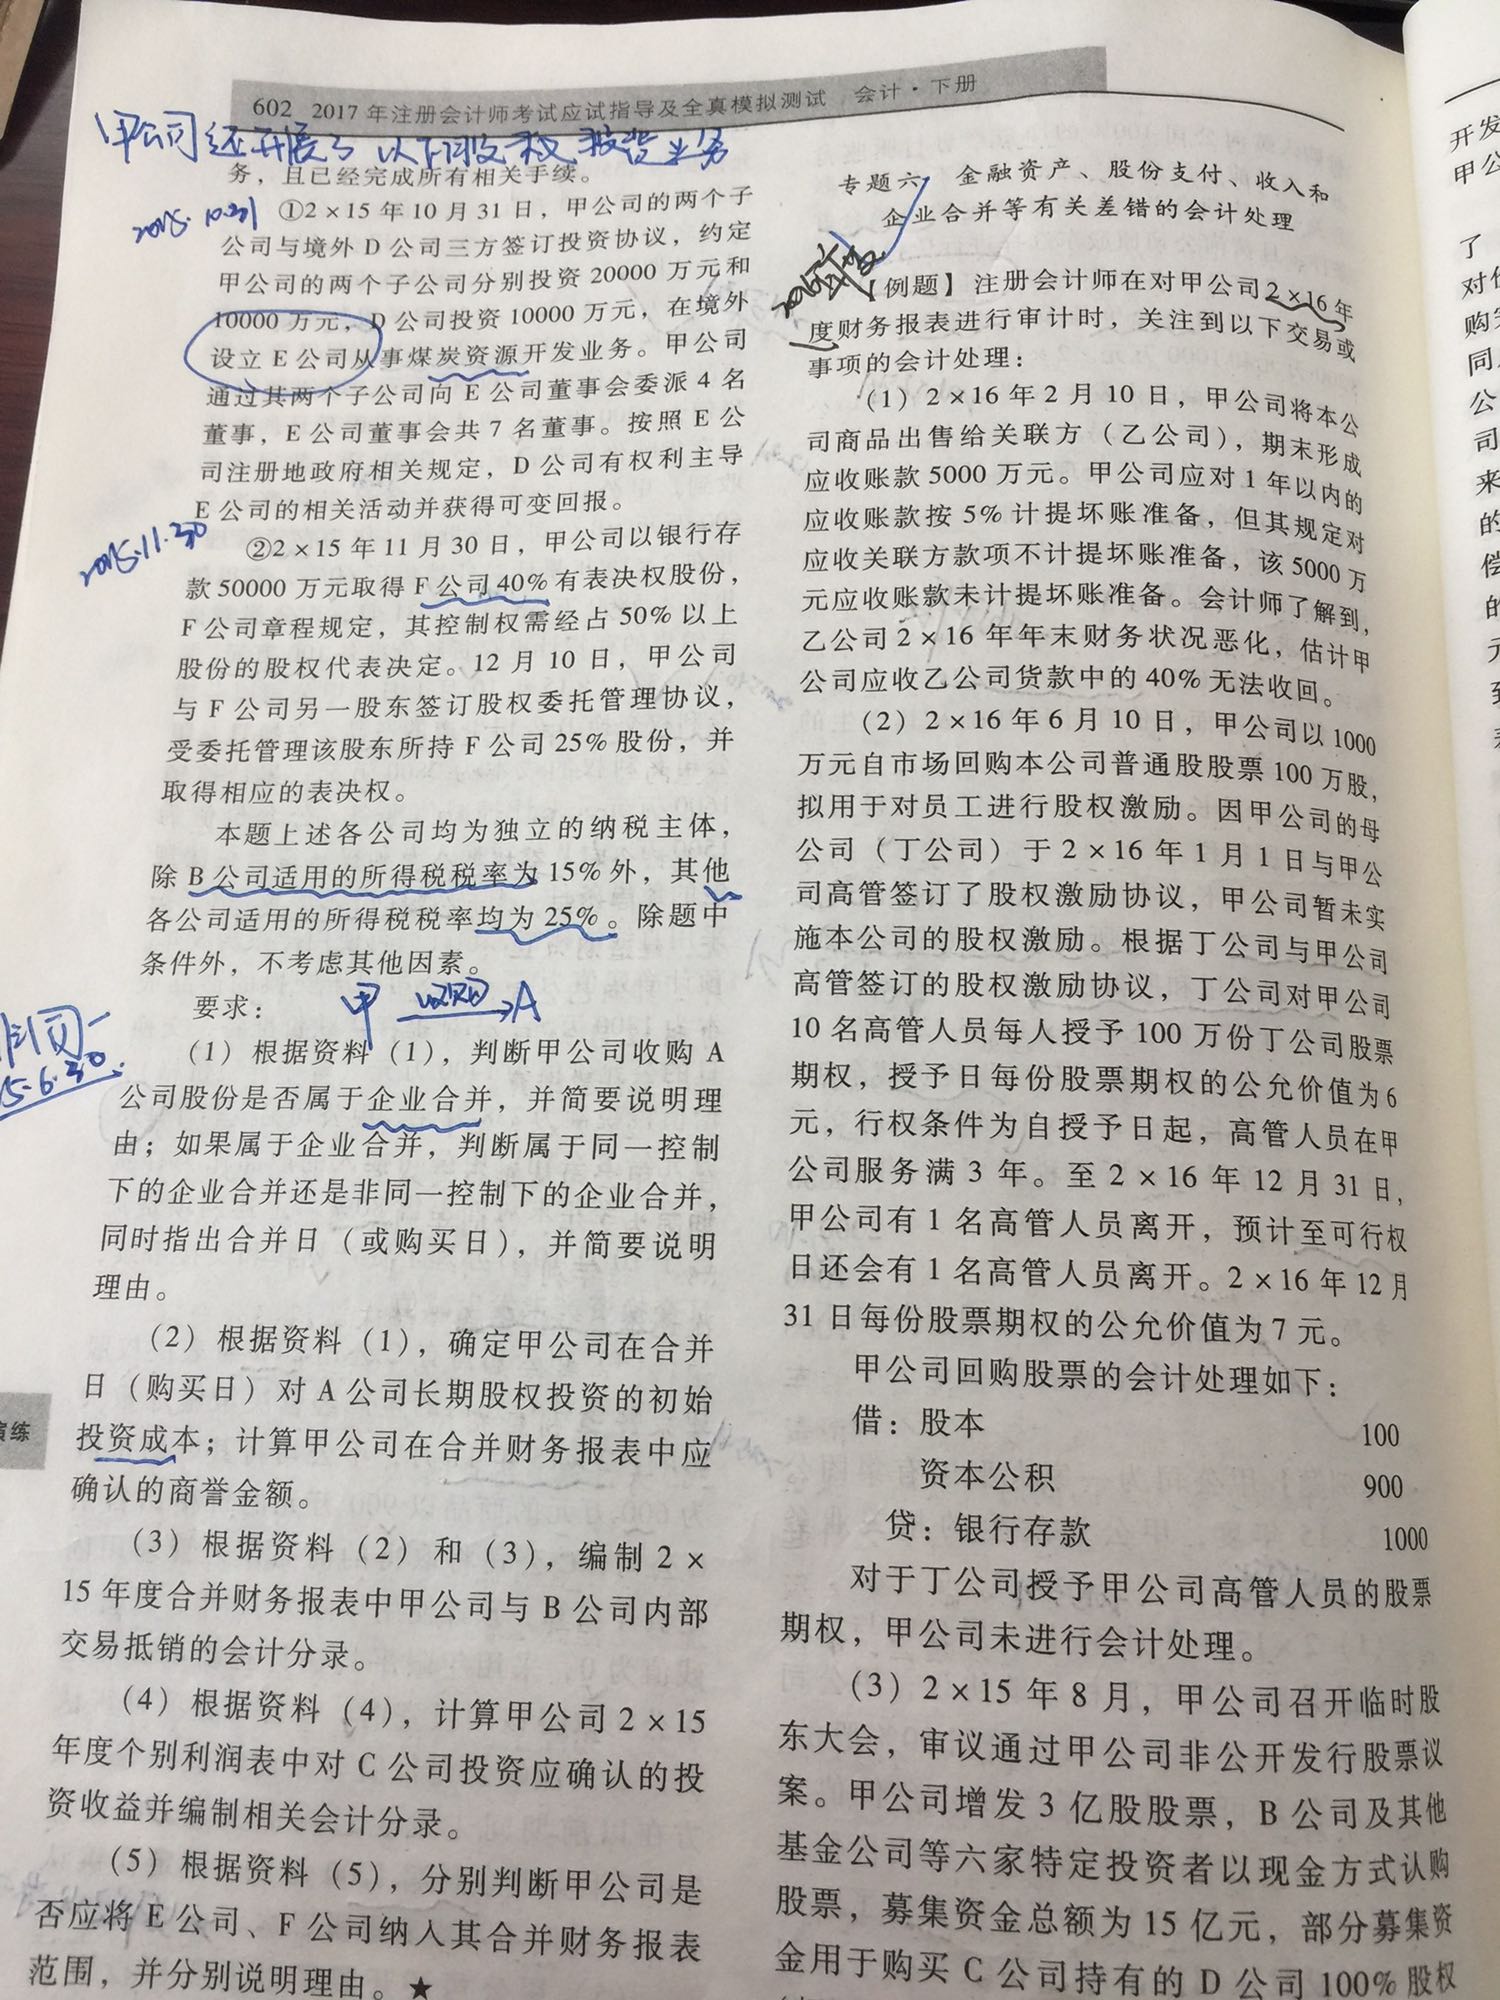 602 2017年注册会计师考试应试指导及全真模拟测试 会计·下册
甲公司还开展了以下股权投资业务
务，且已经完成所有相关手续。
2015.10.31
①2×15年10月31日，甲公司的两个子
公司与境外D公司三方签订投资协议，约定
甲公司的两个子公司分别投资20000万元和
10000万元，D公司投资10000万元，在境外
设立E公司从事煤炭资源开发业务。甲公司
通过其两个子公司向E公司董事会委派4名
董事，E公司董事会共7名董事。按照E公
司注册地政府相关规定，D公司有权利主导
E公司的相关活动并获得可变回报。
2015.11.30
②2×15年11月30日，甲公司以银行存
款50000万元取得F公司40%有表决权股份，
F公司章程规定，其控制权需经占50%以上
股份的股权代表决定。12月10日，甲公司
与F公司另一股东签订股权委托管理协议，
受委托管理该股东所持F公司25%股份，并
取得相应的表决权。
本题上述各公司均为独立的纳税主体，
除B公司适用的所得税税率为15%外，其他
各公司适用的所得税税率均为25%。除题中
条件外，不考虑其他因素。
要求：
甲 收购 A
(1)根据资料(1)，判断甲公司收购A
公司股份是否属于企业合并，并简要说明理
由；如果属于企业合并，判断属于同一控制
下的企业合并还是非同一控制下的企业合并，
同时指出合并日（或购买日），并简要说明
理由。
同一
15.6.30
(2)根据资料(1)，确定甲公司在合并
日（购买日）对A公司长期股权投资的初始
投资成本；计算甲公司在合并财务报表中应
确认的商誉金额。
(3)根据资料(2)和(3)，编制2×
15年度合并财务报表中甲公司与B公司内部
交易抵销的会计分录。
(4)根据资料(4)，计算甲公司2×15
年度个别利润表中对C公司投资应确认的投
资收益并编制相关会计分录。
(5)根据资料(5)，分别判断甲公司是
否应将E公司、F公司纳入其合并财务报表
范围，并分别说明理由。★
演练
专题六 金融资产、股份支付、收入和
企业合并等有关差错的会计处理
【例题】注册会计师在对甲公司2×16年
度财务报表进行审计时，关注到以下交易或
事项的会计处理：
(1)2×16年2月10日，甲公司将本公
司商品出售给关联方（乙公司），期末形成
应收账款5000万元。甲公司应对1年以内的
应收账款按5%计提坏账准备，但其规定对
应收关联方款项不计提坏账准备，该5000万
元应收账款未计提坏账准备。会计师了解到，
乙公司2×16年年末财务状况恶化，估计甲
公司应收乙公司货款中的40%无法收回。
(2)2×16年6月10日，甲公司以1000
万元自市场回购本公司普通股股票100万股，
拟用于对员工进行股权激励。因甲公司的母
公司（丁公司）于2×16年1月1日与甲公
司高管签订了股权激励协议，甲公司暂未实
施本公司的股权激励。根据丁公司与甲公司
高管签订的股权激励协议，丁公司对甲公司
10名高管人员每人授予100万份丁公司股票
期权，授予日每份股票期权的公允价值为6
元，行权条件为自授予日起，高管人员在甲
公司服务满3年。至2×16年12月31日，
甲公司有1名高管人员离开，预计至可行权
日还会有1名高管人员离开。2×16年12月
31日每份股票期权的公允价值为7元。
甲公司回购股票的会计处理如下：
借：股本 100
资本公积 900
贷：银行存款 1000
对于丁公司授予甲公司高管人员的股票
期权，甲公司未进行会计处理。
(3)2×15年8月，甲公司召开临时股
东大会，审议通过甲公司非公开发行股票议
案。甲公司增发3亿股股票，B公司及其他
基金公司等六家特定投资者以现金方式认购
股票，募集资金总额为15亿元，部分募集资
金用于购买C公司持有的D公司100%股权
开发
甲公
了
购
同
公
司
来
的
偿
的